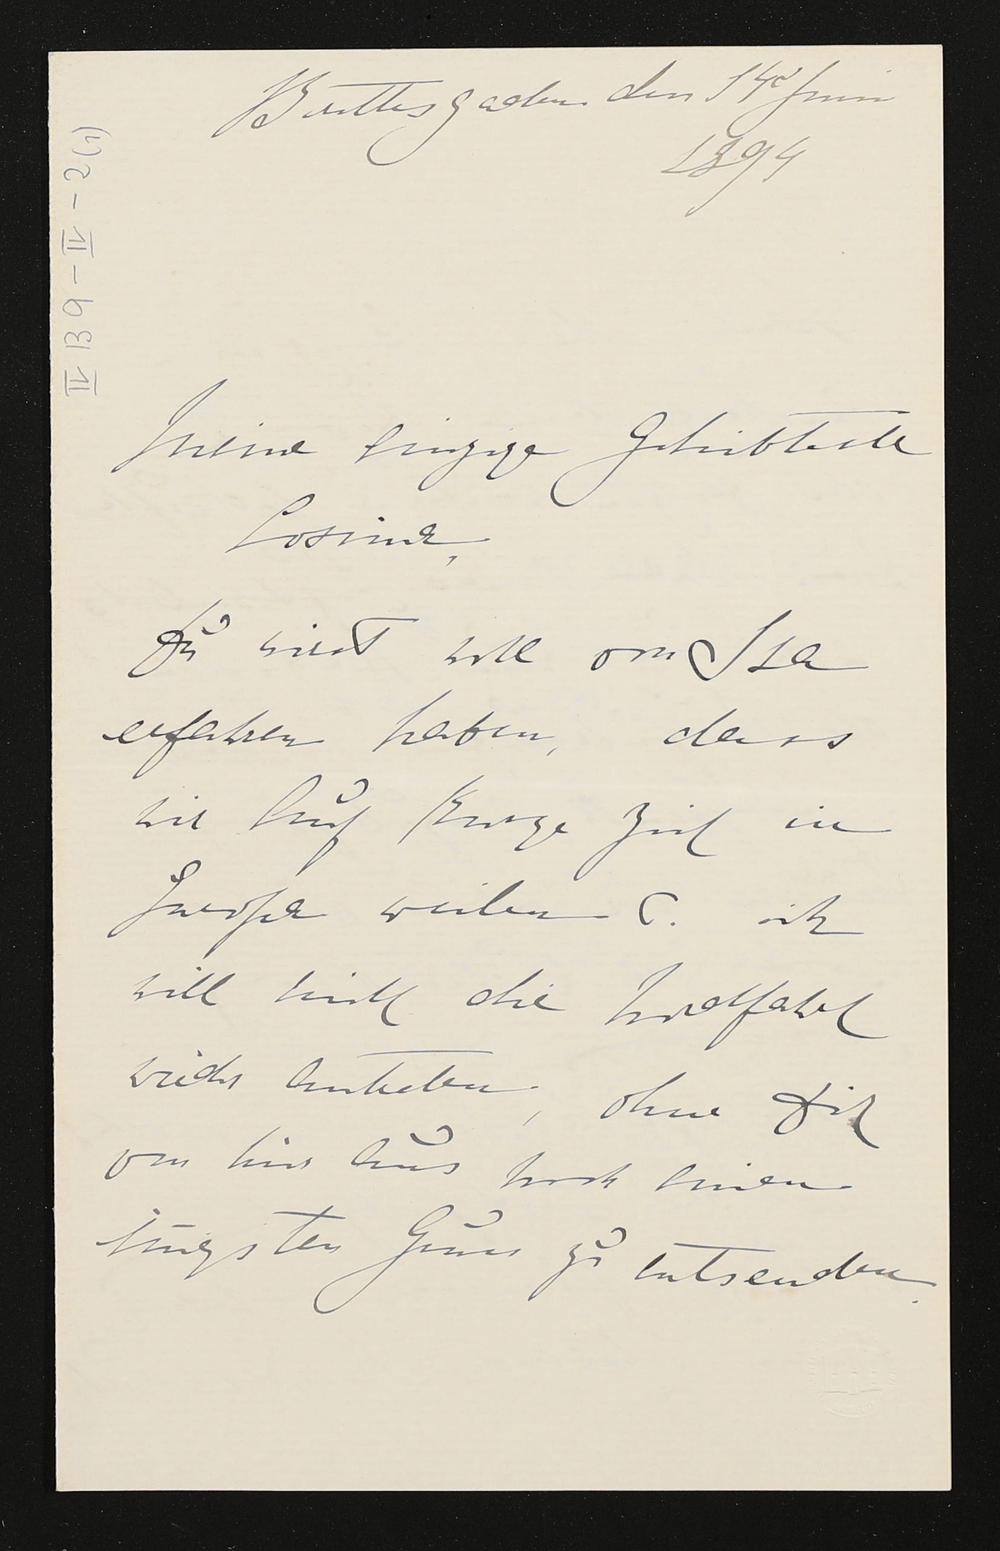 Berchtesgaden den 14t Juni
1894
IV B 9 - IV - 2 (1)
Meine einzige Geliebteste
Cosima,
Du wirst wohl von Isa
erfahren haben, dass
wir auf kurze Zeit in
Europa weilen &. ich
will nicht die
wieder antreten, ohne Dich
von hier aus noch einen
innigsten Gruss zu entsenden.